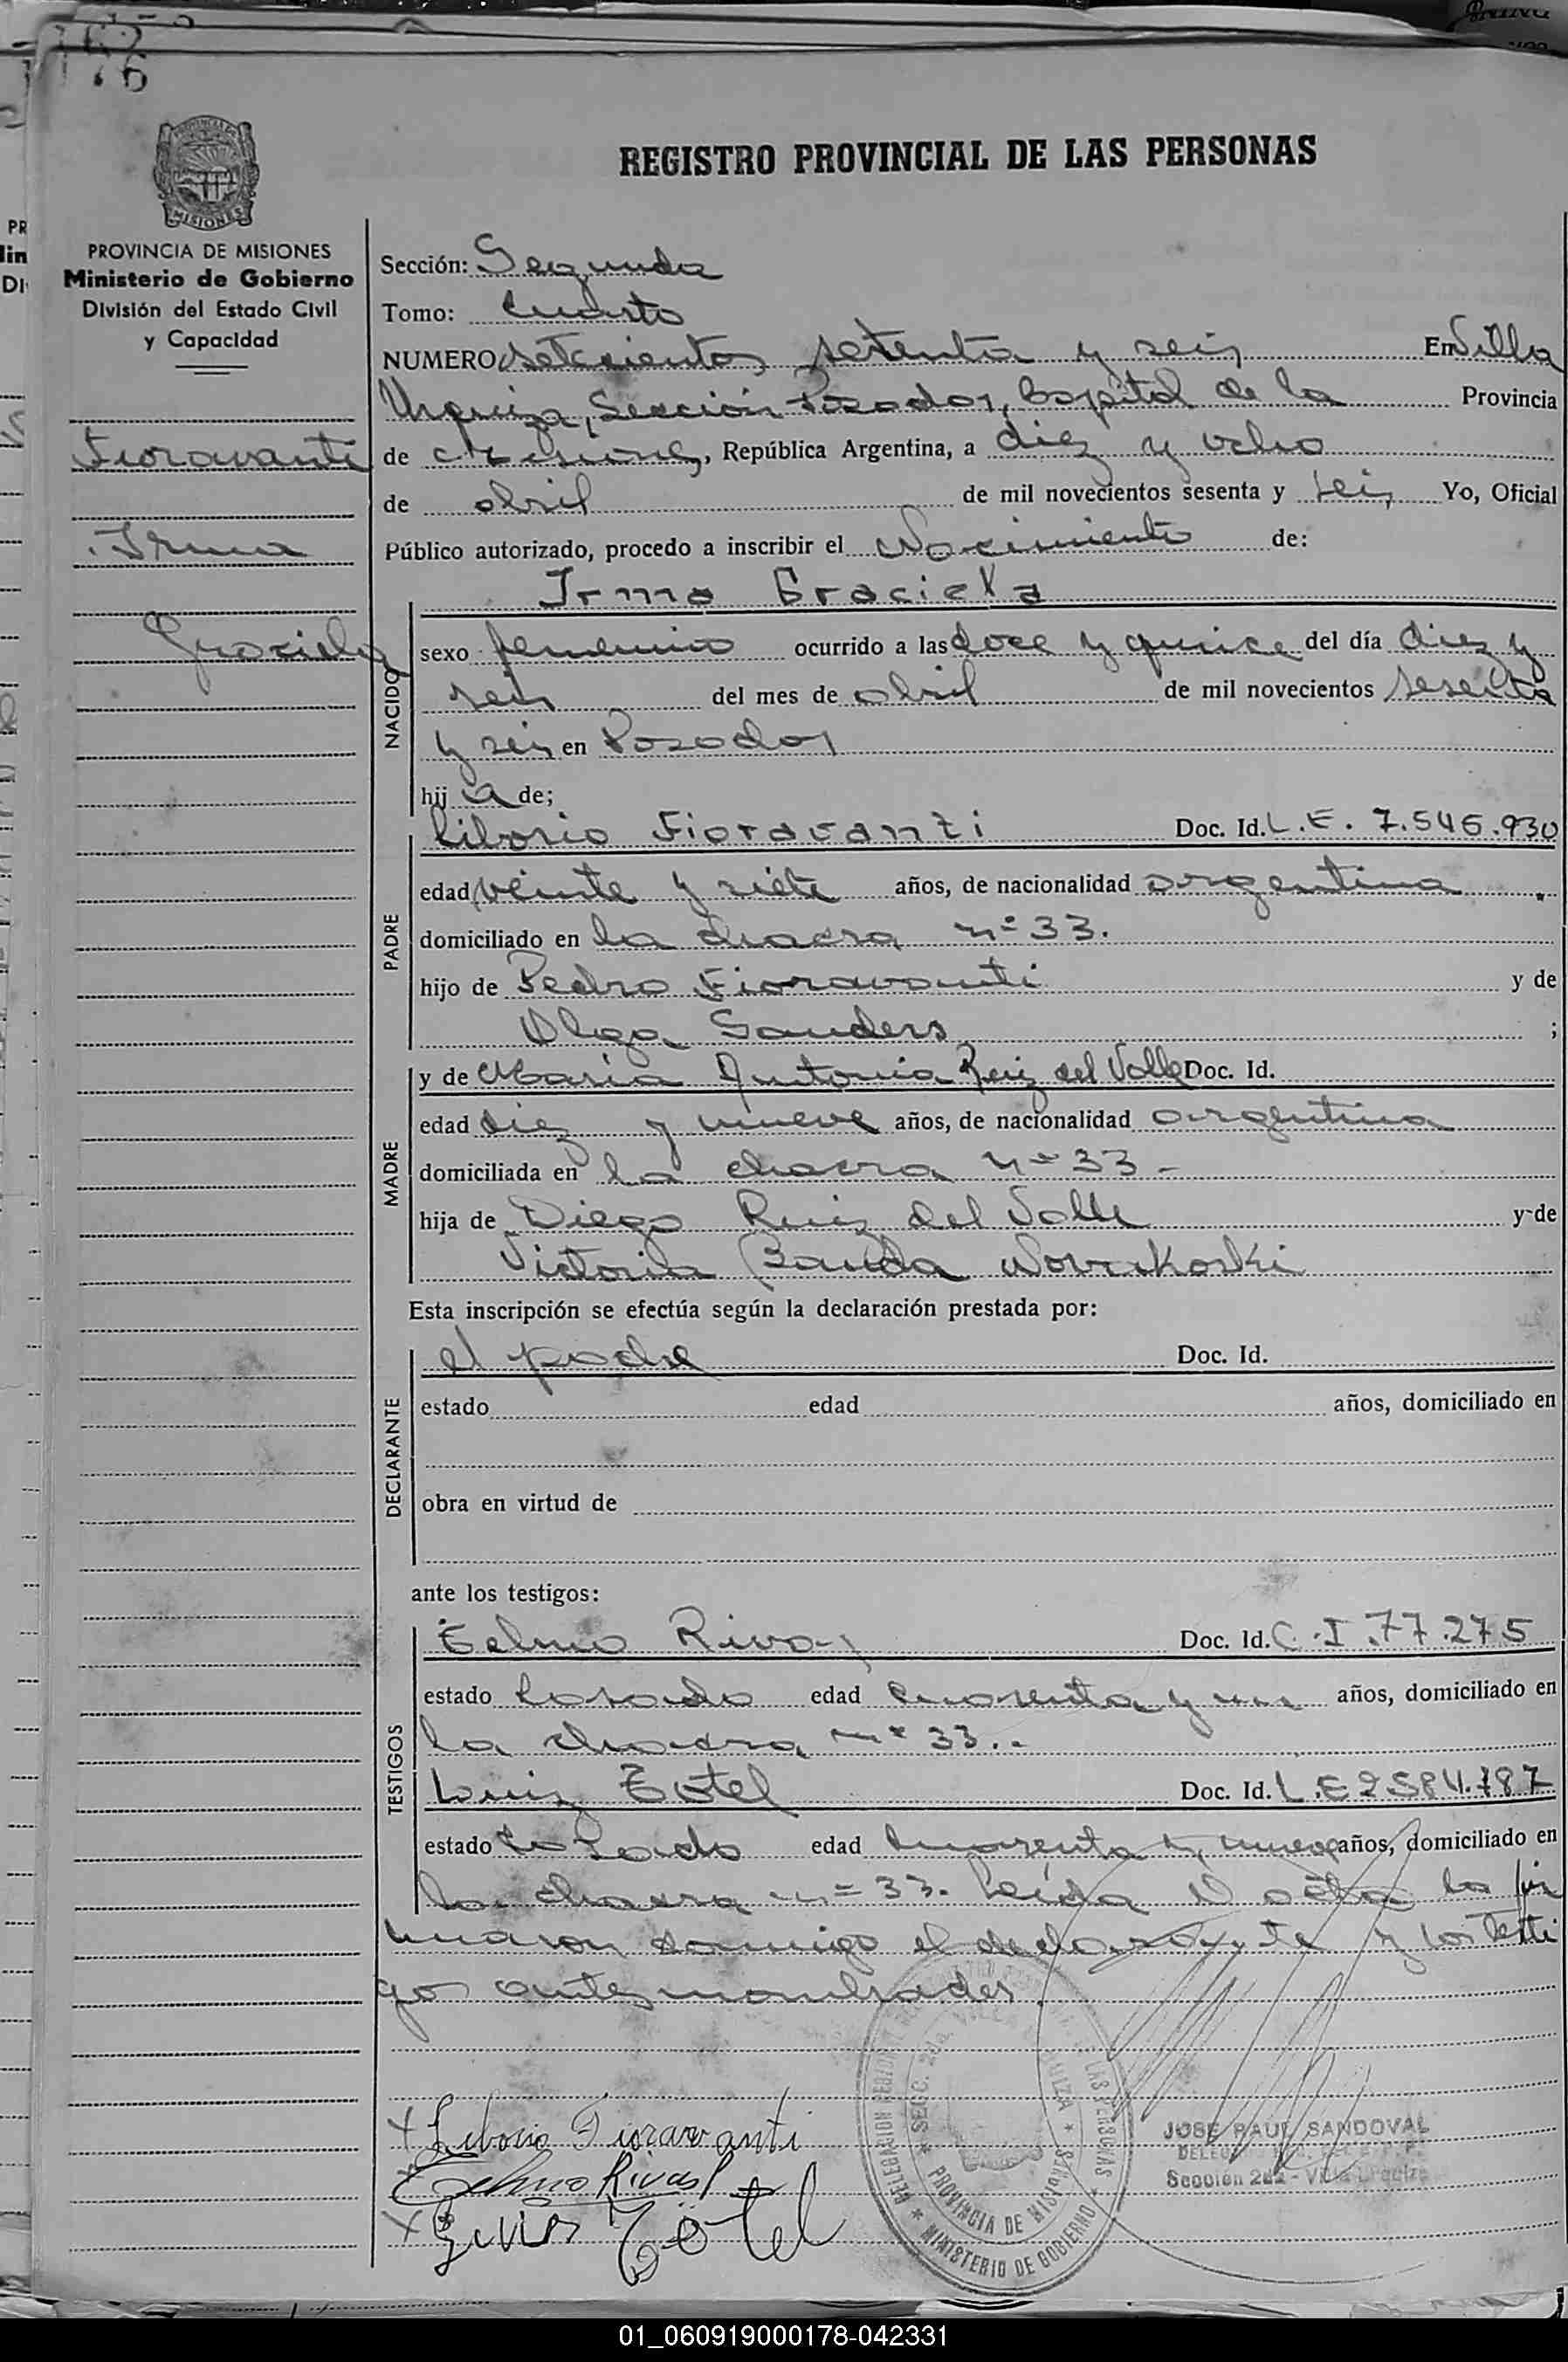 776
PROVINCIA DE MISIONES
Ministerio de Gobierno
División del Estado Civil
y Capacidad
Fioravanti
Irma
Graciela
REGISTRO PROVINCIAL DE LAS PERSONAS
Sección: Segunda
Tomo: Cuarto
NUMERO setecientos setenta y seis En Villa
Urquiza, Sección Posadas, Capital de la Provincia
de Misiones, República Argentina, a diez y ocho
de abril de mil novecientos sesenta y seis Yo, Oficial
Público autorizado, procedo a inscribir el Nacimiento de:
Irma Graciela
NACIDO
sexo femenino ocurrido a las doce y quince del día diez y
seis del mes de abril de mil novecientos sesenta
y seis en Posadas
hij a de;
PADRE
Liborio Fioravanti Doc. Id. L.E. 7.546.930
edad veinte y siete años, de nacionalidad argentina
domiciliado en la chacra nº 33.
hijo de Pedro Fioravanti y de
Olga Sanders ;
MADRE
y de María Antonia Ruiz del Valle Doc. Id.
edad diez y nueve años, de nacionalidad argentina
domiciliada en la chacra nº 33-
hija de Diego Ruiz del Valle y de
Victoria Banda
Esta inscripción se efectúa según la declaración prestada por:
DECLARANTE
el padre Doc. Id.
estado edad años, domiciliado en
obra en virtud de
ante los testigos:
TESTIGOS
Telmo Rivas Doc. Id. C.I.77.275
estado Casado edad cuarenta y un años, domiciliado en
la chacra nº 33..
Luis Totel Doc. Id. L.E 2584.787
estado casado edad cuarenta y nueve años, domiciliado en
la chacra nº 33. Leída el acta la fir
maron conmigo el declarante y los testi
gos antes nombrados.
Liborio Fioravanti
Telmo Rivas
Luis Totel
DELEGACION
SECC. 2da. VILLA URQUIZA
PROVINCIA DE MISIONES
MINISTERIO DE GOBIERNO
JOSE RAUL SANDOVAL
Sección 2da - Villa Urquiza
01_060919000178-042331